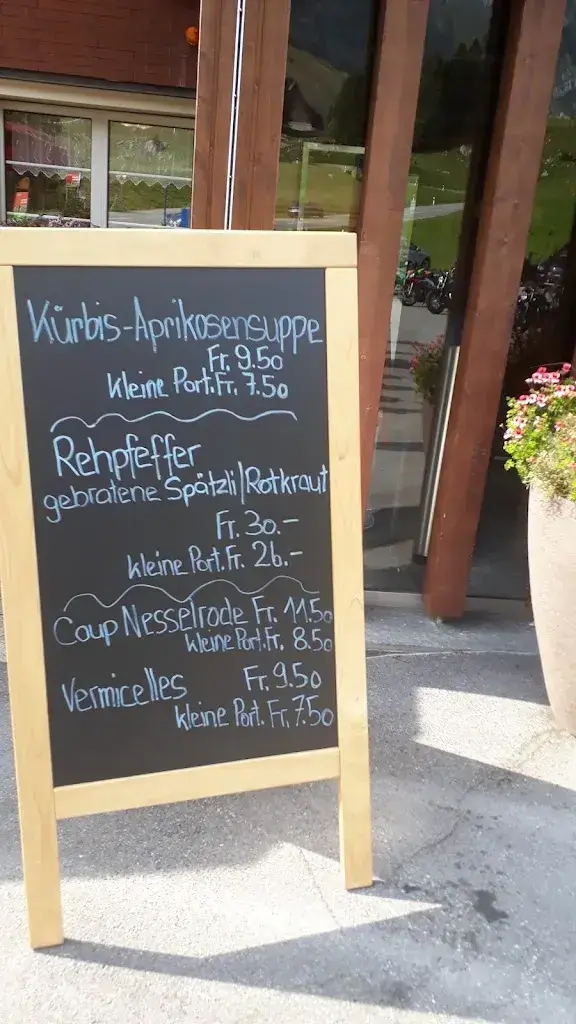 Kürbis-Aprikosensuppe
Fr. 9.50
kleine Port. Fr. 7.50
Rehpfeffer
gebratene Spätzli/Rotkraut
Fr. 30.–
kleine Port. Fr. 26.–
Coup Nesselrode Fr. 11.50
kleine Port. Fr. 8.50
Vermicelles Fr. 9.50
kleine Port. Fr. 7.50